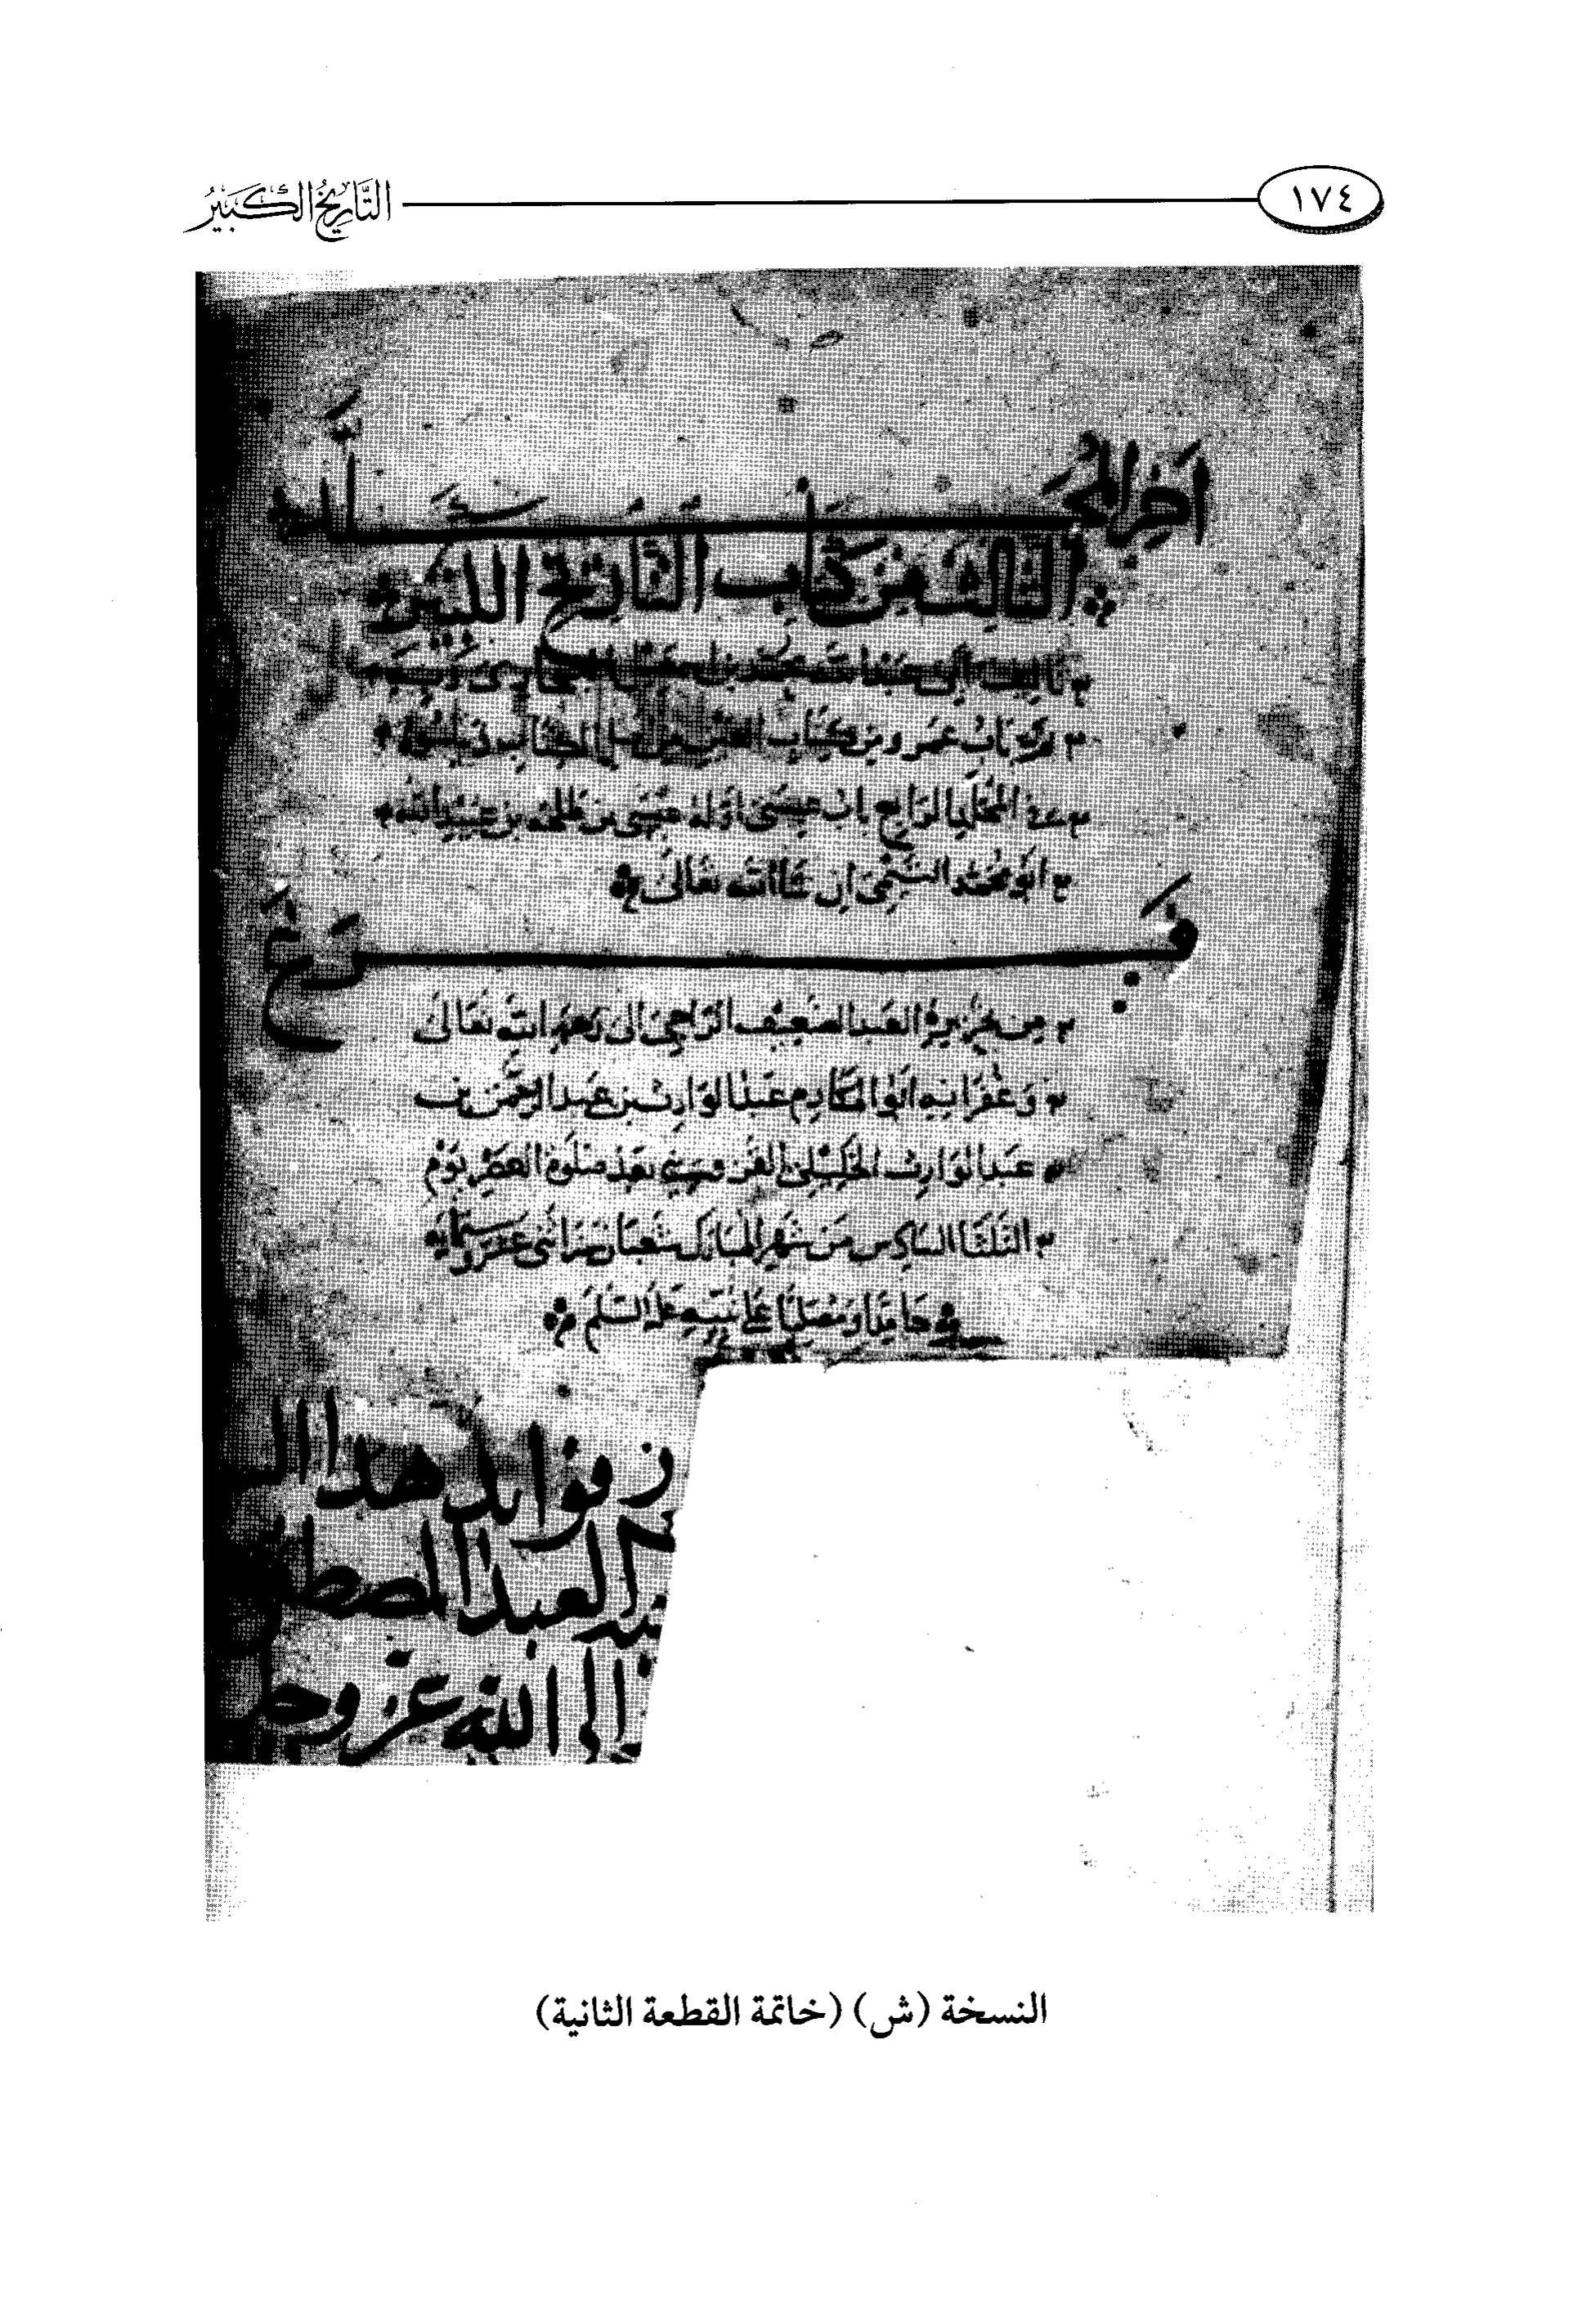 ١٧٤
التَّارِيخُ الكَبِيرُ
آخر المجلد
الثالث من كتاب التاريخ الكبير
تاليف ابي عبد الله محمد بن اسمعيل البخاري
باب عمرو من كتاب
المجلد الرابع باب عيسى اوله عيسى بن طلحة بن عبيد الله
ابو محمد التيمي ان شا الله تعالى
فرغ
من تحريره العبد الضعيف الراجي الى رحمة الله تعالى
وغفرانه ابو المكارم عبد الوارث بن عبد الرحمن بن
عبد الوارث الخليلي بعد صلوة العصر يوم
الثلثا السادس من شهر المبارك شعبان سنة اثنى عشر وستمايه
حامدا ومصليا على نبيه عليه السلم
فوائد هذا
العبد المصطفى
الى الله عز وجل
النسخة (ش) (خاتمة القطعة الثانية)